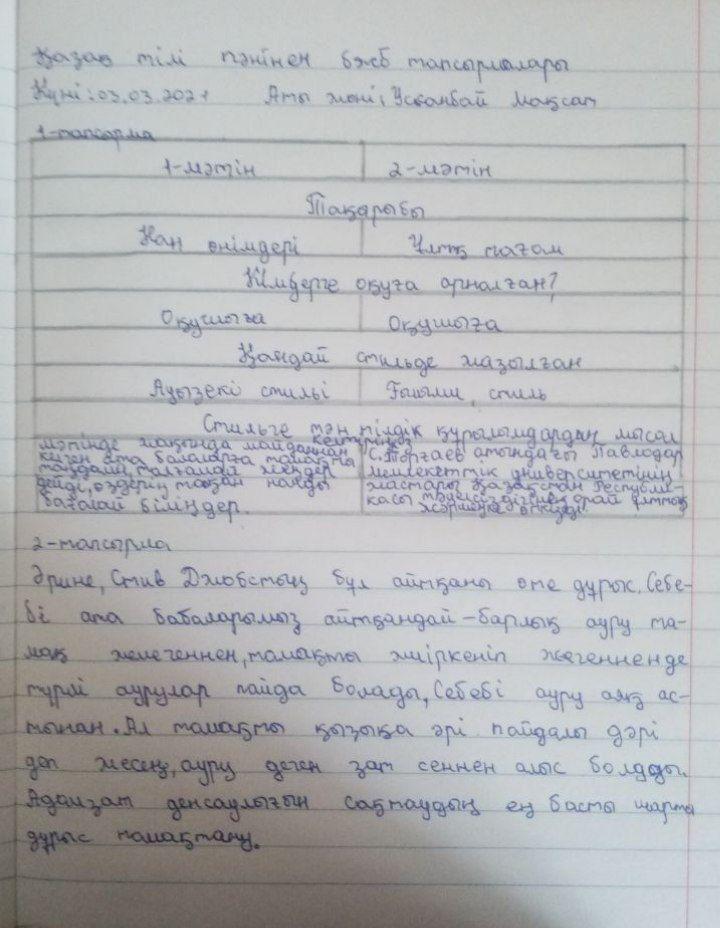 Қазақ тілі пәнінен бжб тапсырмалары
Күні: 03.03.2021 Аты жөні: Усканбай Мақсат
1-тапсырма
1-мәтін 2-мәтін
Тақырыбы
Нан өнімдері Ұлттық тағам
Кімдерге оқуға арналған?
Оқушыға Оқушыға
Қандай стильде жазылған
Ауызекі стильі Ғылыми стиль
Стильге тән тілдік құрылымдардың мысал
келтіріңіз
мәтінде жақында майданнан
киген ата балаларға тамақты
таңдамай, талғамай жеңдер
дейді, өздерің тапқан нанды
бағалай біліңдер.
С.Торғаев атындағы Павлодар
мемлекеттік университетінің
жастары Қазақстан Республи-
касы тәуелсіздігіне орай ұлттық
жәрмеңке өткізді
2-тапсырма
Әрине, Стив Джобстың бұл айтқаны өте дұрыс. Себе-
бі ата бабаларымыз айтқандай - барлық ауру та-
мақ жемегеннен, тамақты жиіркеніп жегенненде
түрлі аурулар пайда болады, Себебі ауру аяқ ас-
тынан. Ал тамақты қызыққа әрі пайдалы дәрі
деп жесең, ауру деген зат сеннен алыс болады.
Адамзат денсаулығын сақтаудың ең басты шарты
дұрыс тамақтану.